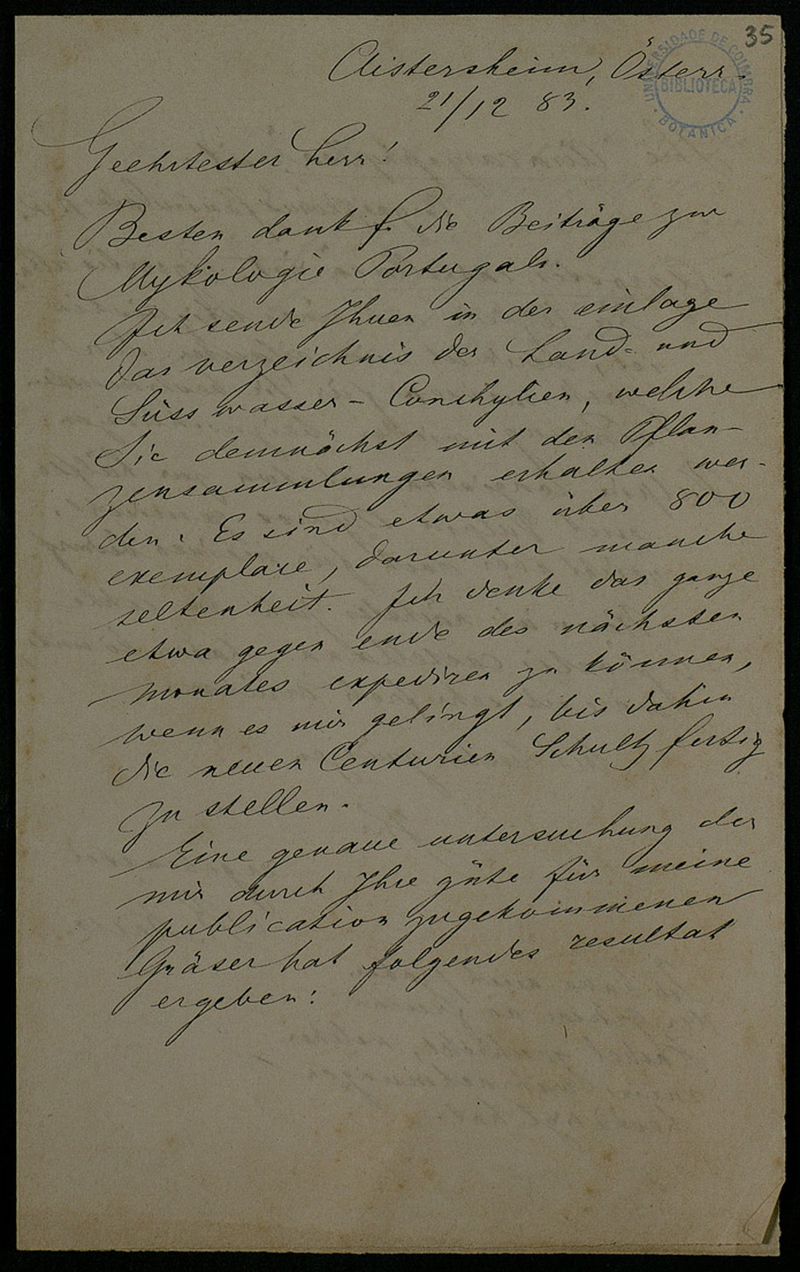 35
UNIVERSIDADE DE COIMBRA
BIBLIOTECA
BOTANICA
Aistersheim, Österr.
21/12 83.
Geehrtester Herr!
Besten dank f. die Beiträge zur
Mykologie Portugals.
Ich sende Ihnen in der einlage
das verzeichnis der Land- und
Süsswasser-Conchylien, welche
Sie demnächst mit den Pflan-
zensammlungen erhalten wer-
den. Es sind etwas über 800
exemplare, darunter manche
seltenheit. Ich denke das ganze
etwa gegen ende des nächsten
monates expediren zu können,
wenn es mir gelingt, bis dahin
die neuen Centurien Schultz fertig
zu stellen.
Eine genaue untersuchung der
mir durch Ihre güte für meine
publication zugekommenen
Gräser hat folgendes resultat
ergeben: